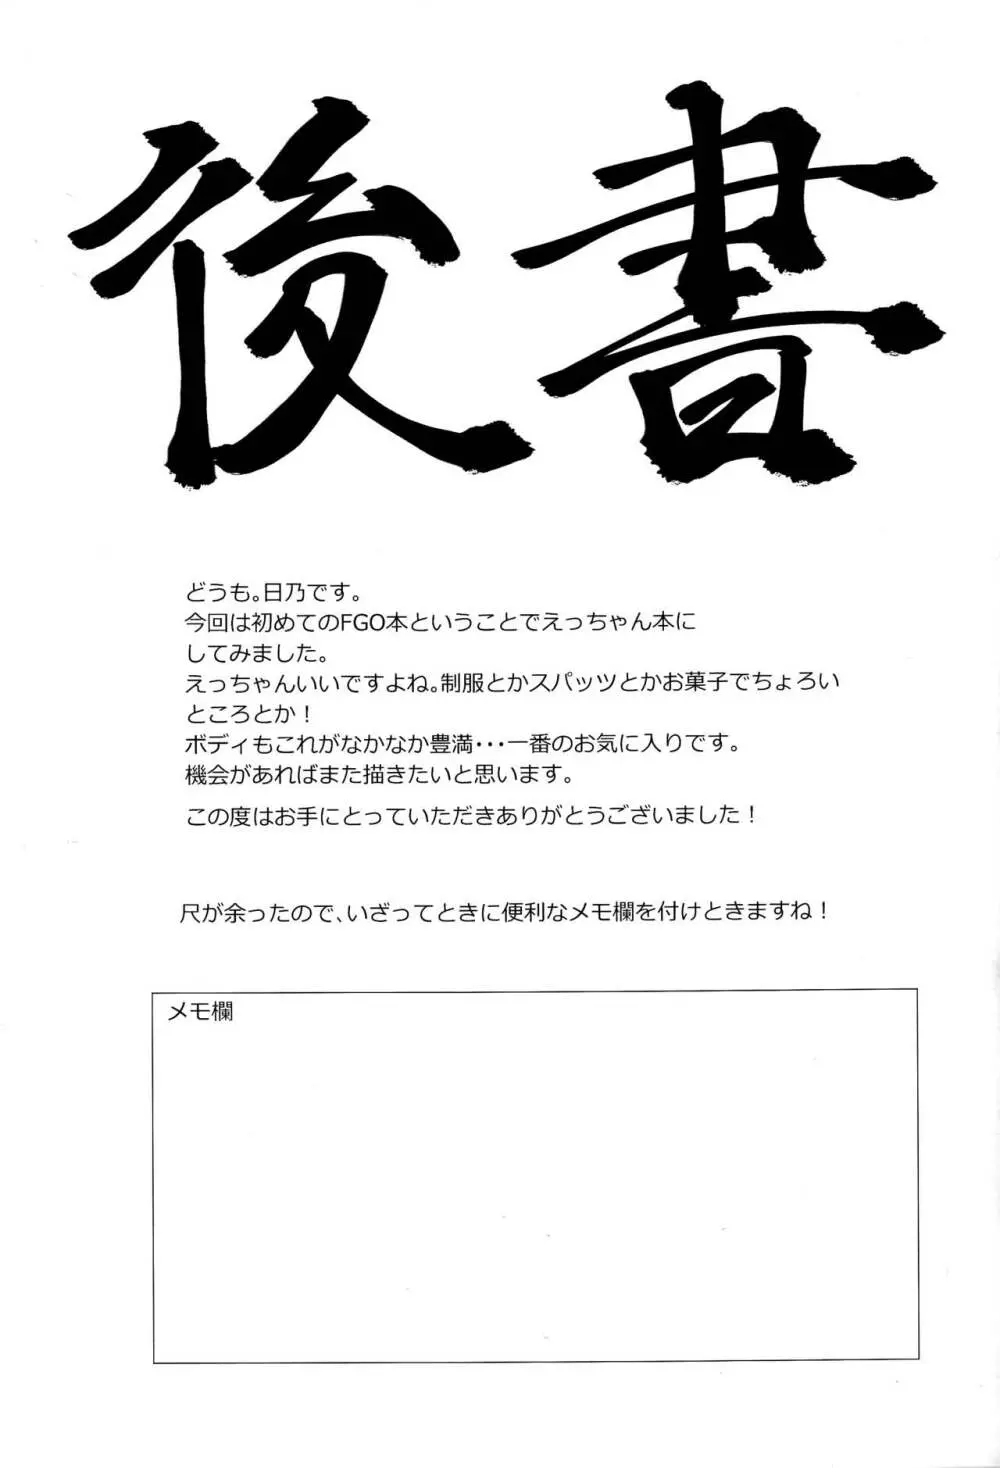 後書
どうも。日乃です。
今回は初めてのFGO本ということでえっちゃん本に
してみました。
えっちゃんいいですよね。制服とかスパッツとかお菓子でちょろい
ところとか！
ボディもこれがなかなか豊満・・・一番のお気に入りです。
機会があればまた描きたいと思います。
この度はお手にとっていただきありがとうございました！
尺が余ったので、いざってときに便利なメモ欄を付けときますね！
メモ欄